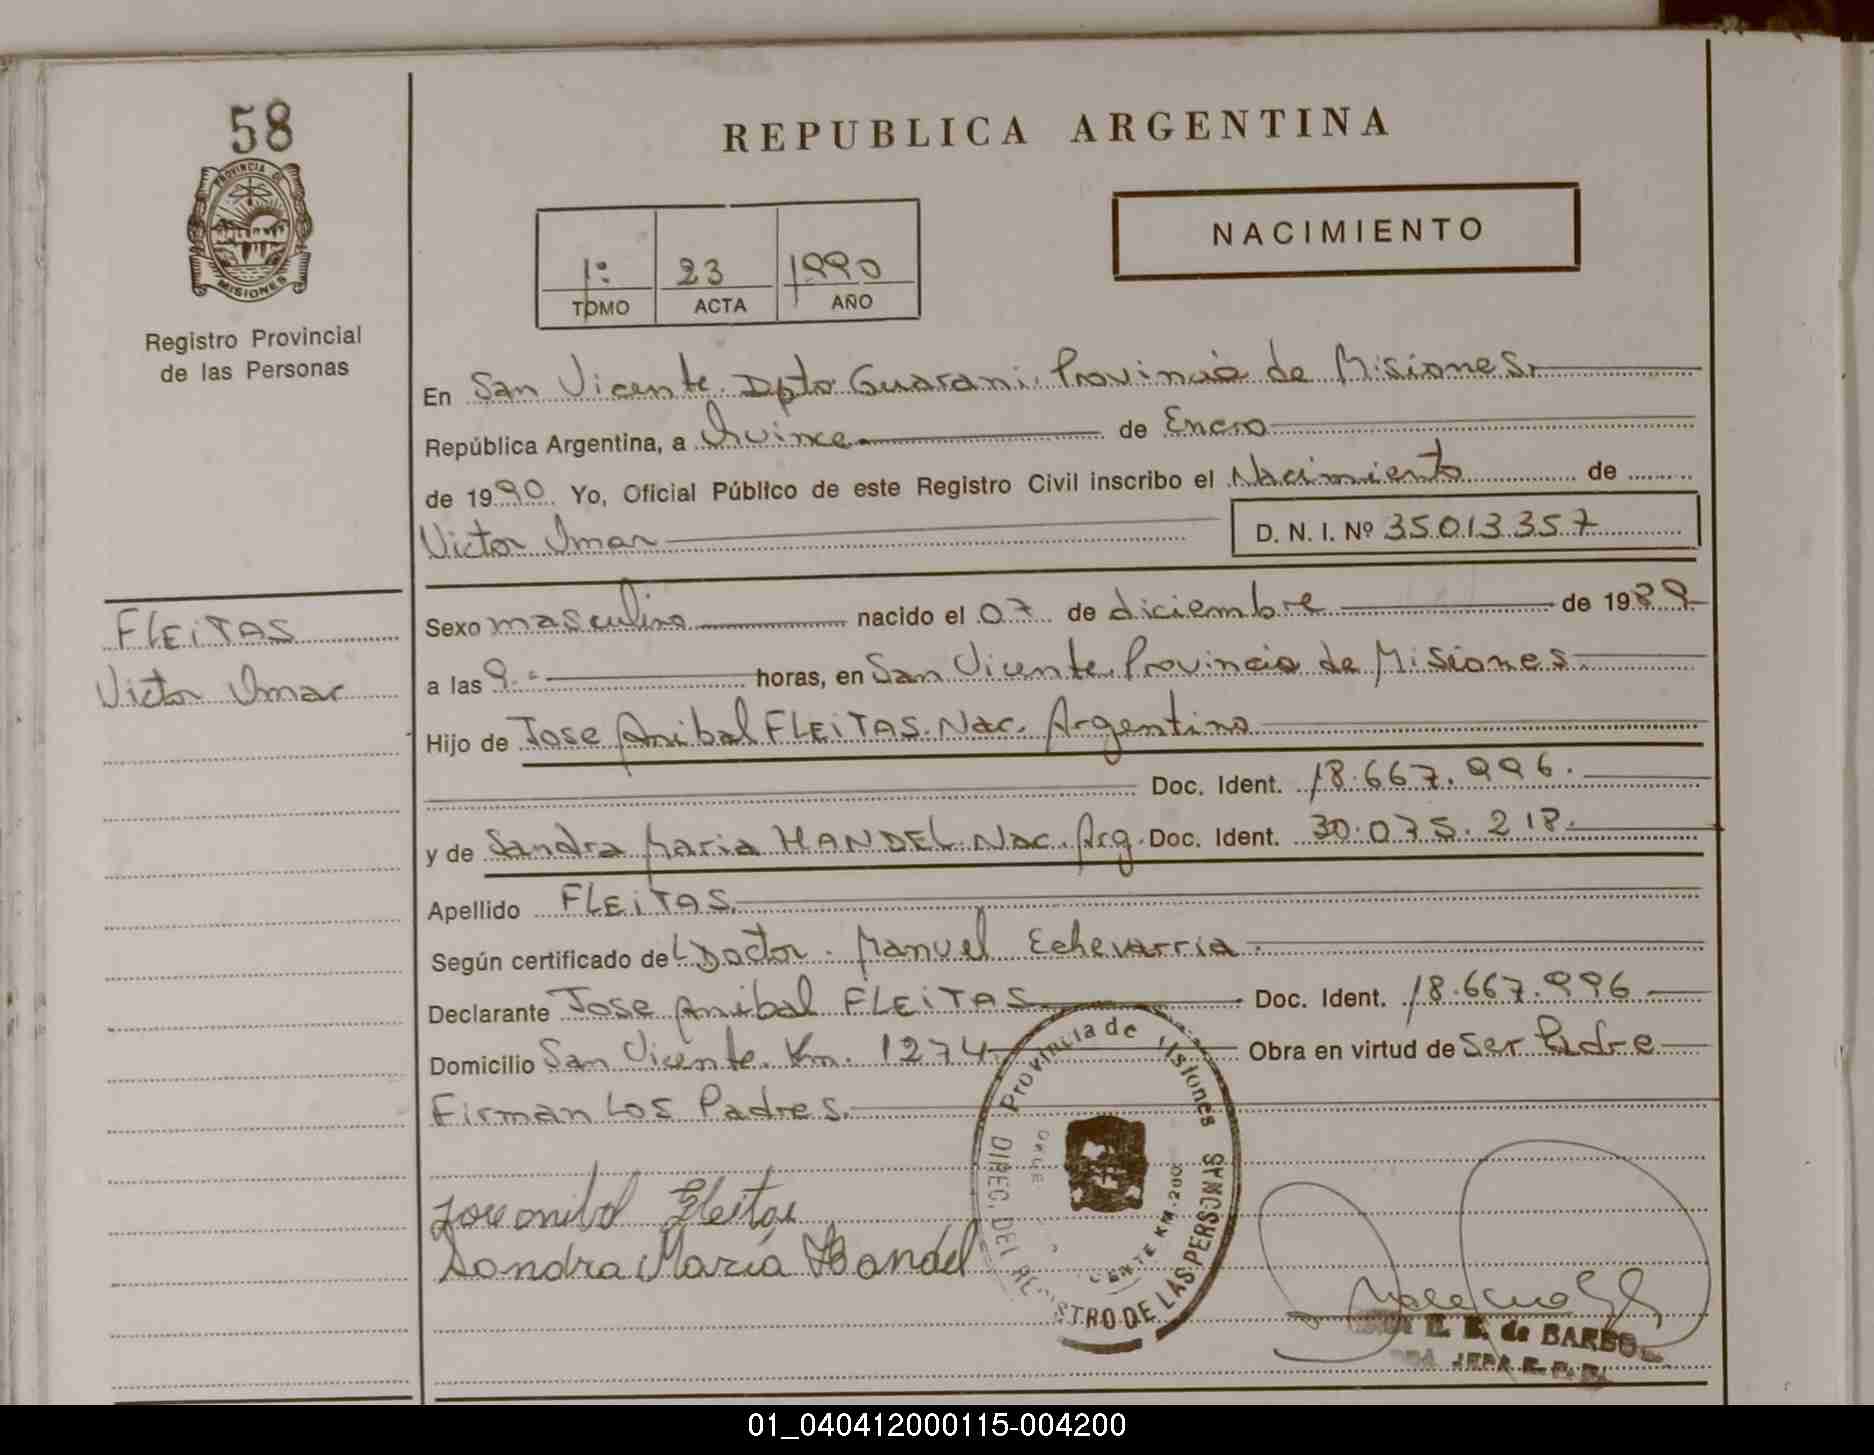 58
PROVINCIA DE
MISIONES
Registro Provincial
de las Personas
REPUBLICA ARGENTINA
NACIMIENTO
1º 23 1990
TOMO ACTA AÑO
En San Vicente Dpto Guarani. Provincia de Misiones.
República Argentina, a Quince de Enero
de 1990 Yo, Oficial Público de este Registro Civil inscribo el Nacimiento de
Victor Omar D. N. I. Nº 35.013.357
FLEiTAS
Victor Omar
Sexo masculino nacido el 07 de diciembre de 1989
a las 9.- horas, en San Vicente. Provincia de Misiones.
Hijo de Jose Anibal FLEiTAS. Nac. Argentino
Doc. Ident. 18.667.996.
y de Sandra Maria HANDEL. Nac. Arg. Doc. Ident. 30.075.218.
Apellido FLEiTAS.
Según certificado del Doctor. Manuel Echevarria.
Declarante Jose Anibal FLEiTAS Doc. Ident. 18.667.996
Domicilio San Vicente. Km. 1274 Obra en virtud de Ser Padre
Firman Los Padres.
Provincia de Misiones
DIREC. DEL REGISTRO DE LAS PERSONAS
Jose anibal Fleitas
Sandra María Handel
de BARBO
01_040412000115-004200